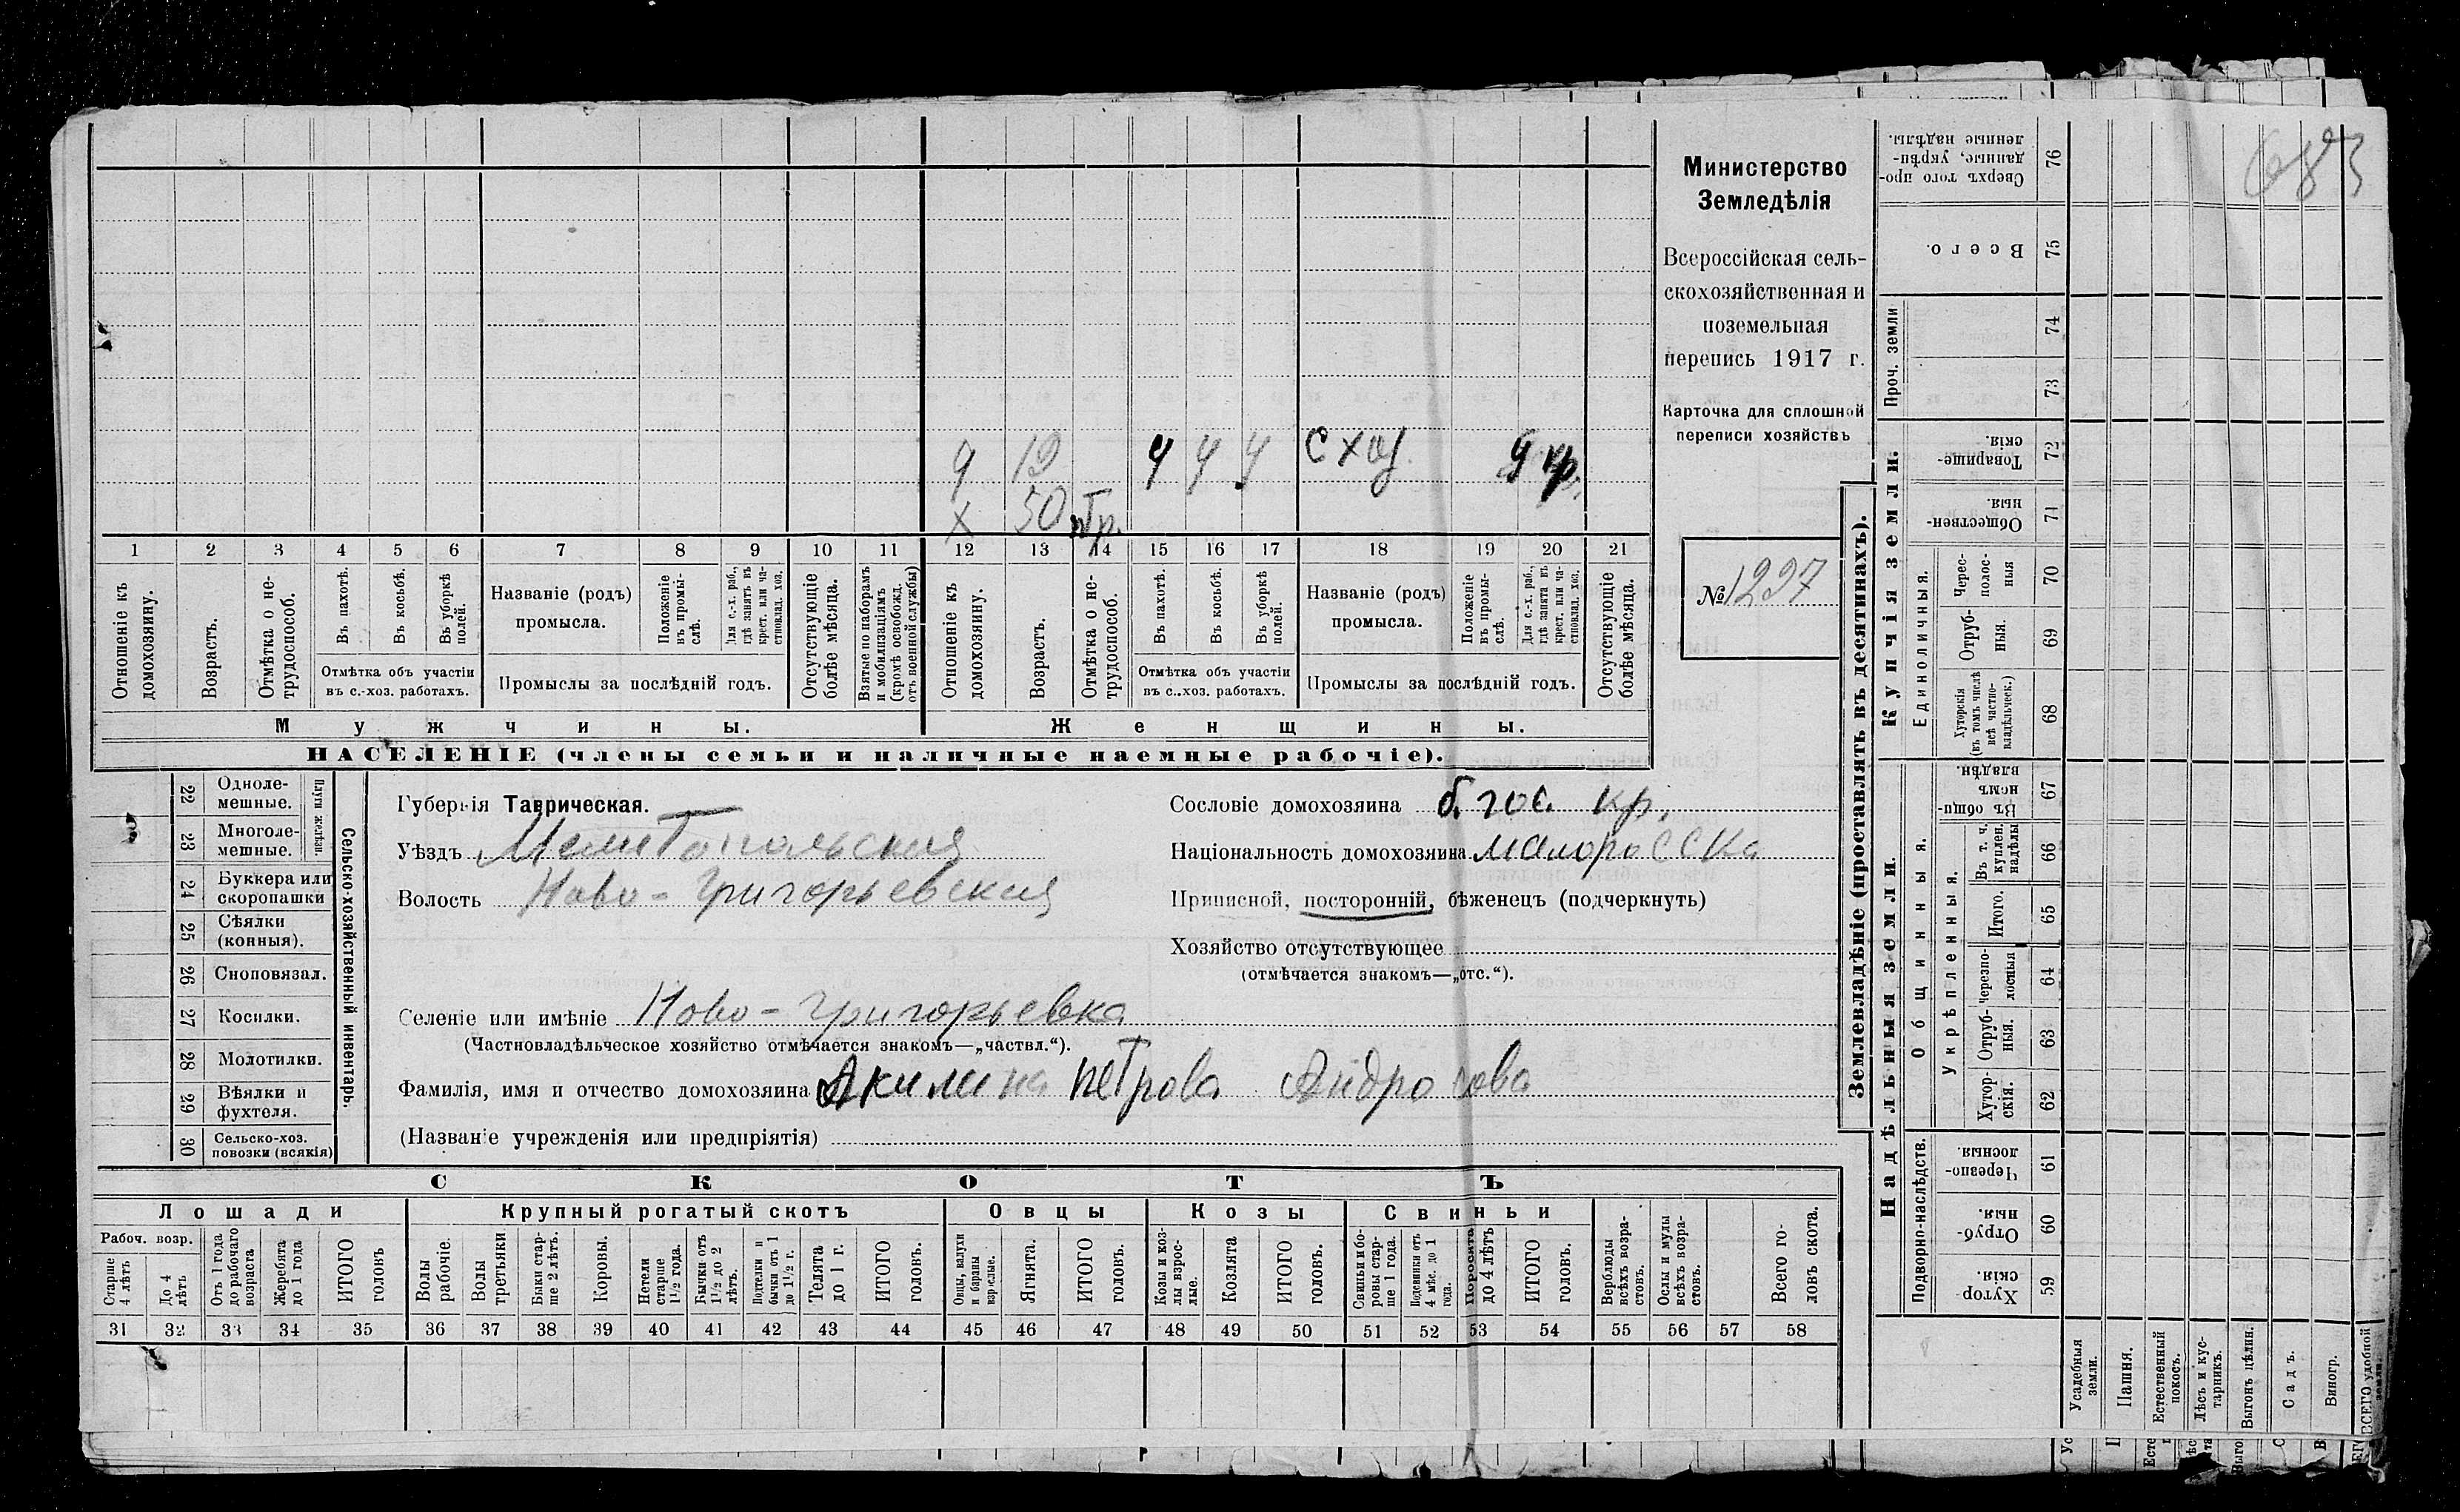 683
Министерство
Земледѣлія
Всероссійская сель-
скохозяйственная и
поземельная
перепись 1917 г.
Карточка для сплошной
переписи хозяйствъ
№ 1297
д 19 ч ч ч с х д кр.
х 50 гр.
1 2 3 4 5 6 7 8 9 10 11 12 13 14 15 16 17 18 19 20 21
Отношеніе къ домохозяину.
Возрастъ.
Отмѣтка о не-
трудоспособ.
Въ пахотѣ.
Въ косьбѣ.
Въ уборкѣ полей.
Отмѣтка объ участіи
въ с.-хоз. работахъ.
Названіе (родъ)
промысла.
Положеніе въ промы-
слѣ.
Для с.-х. раб., гдѣ занятъ въ крест. или ча-
стновлад. хоз.
Промыслы за послѣдній годъ.
Отсутствующіе болѣе мѣсяца.
Взятые по наборамъ и мобилизаціямъ (кромѣ освобожд. отъ военной службы)
Отношеніе къ домохозяину.
Возрастъ.
Отмѣтка о не-
трудоспособ.
Въ пахотѣ.
Въ косьбѣ.
Въ уборкѣ полей.
Отмѣтка объ участіи
въ с.-хоз. работахъ.
Названіе (родъ)
промысла.
Положеніе въ промы-
слѣ.
Для с.-х. раб., гдѣ занята въ крест. или ча-
стновлад. хоз.
Промыслы за послѣдній годъ.
Отсутствующіе болѣе мѣсяца.
Мужчины.
Женщины.
НАСЕЛЕНІЕ (члены семьи и наличные наемные рабочіе).
22 Одноле-
мешные.
23 Многоле-
мешные.
Плуги желѣзн.
24 Буккера или
скоропашки
25 Сѣялки
(конныя).
26 Сноповязал.
27 Косилки.
28 Молотилки.
29 Вѣялки и
фухтеля.
30 Сельско-хоз.
повозки (всякія)
Сельско-хозяйственный инвентарь.
Губернія Таврическая.
Уѣздъ Мелитопольския
Волость Ново-Григорьевския
Селеніе или имѣніе Ново-Григорьевка
(Частновладѣльческое хозяйство отмѣчается знакомъ—„частвл.“).
Фамилія, имя и отчество домохозяина Акилина Петрова Андросова
(Названіе учрежденія или предпріятія)
Сословіе домохозяина б. гос. кр.
Національность домохозяина малоросска
Приписной, посторонній, бѣженецъ (подчеркнуть)
Хозяйство отсутствующее
(отмѣчается знакомъ—„отс.“).
СКОТЪ
Лошади
Крупный рогатый скотъ
Овцы
Козы
Свиньи
Рабоч. возр.
Старше 4 лѣтъ
До 4 лѣтъ
Отъ 1 года до рабочаго возраста
Жеребята до 1 года
ИТОГО головъ
Волы рабочіе.
Волы третьяки
Быки стар-
ше 2 лѣтъ.
Коровы.
Нетели старше 1½ года.
Бычки отъ 1½ до 2 лѣтъ.
Подтелки и бычки отъ 1 до 1½ г.
Телята до 1 г.
ИТОГО головъ.
Овцы, валухи и бараны взрослые.
Ягнята.
ИТОГО головъ.
Козы и коз-
лы взрос-
лые.
Козлята
ИТОГО головъ.
Свиньи и бо-
ровы стар-
ше 1 года.
Подсвинки отъ 4 мѣс. до 1 года.
Поросята до 4 лѣтъ
ИТОГО головъ.
Верблюды всѣхъ возра-
стовъ.
Ослы и мулы всѣхъ возра-
стовъ.
Всего го-
ловъ скота.
31 32 33 34 35 36 37 38 39 40 41 42 43 44 45 46 47 48 49 50 51 52 53 54 55 56 57 58
Землевладѣніе (проставлять въ десятинахъ).
Купчія земли.
Надѣльныя земли.
Сверхъ того про-
данные, укрѣп-
ленные надѣлы. 76
Всего. 75
Проч. земли
74
73
Товарище-
скія. 72
Обществен-
ныя. 71
Единоличныя.
Черес-
полос-
ныя 70
Отруб-
ныя. 69
Хуторскія (въ томъ числѣ всѣ частно-
владѣльческ.) 68
Общинныя.
Въ общин-
номъ владѣн. 67
Укрѣпленныя.
Въ т. ч. куплен. надѣлы 66
Итого. 65
Черезпо-
лосныя 64
Отруб-
ныя. 63
Хутор-
скія. 62
Подворно-наслѣдств.
Черезпо-
лосныя. 61
Отруб-
ныя. 60
Хутор
скія. 59
Усадебныя земли.
Пашня.
Естественный покосъ.
Лѣсъ и кус-
тарникъ.
Выгонъ цѣлин.
Садъ.
Виногр.
ВСЕГО удобной земли.